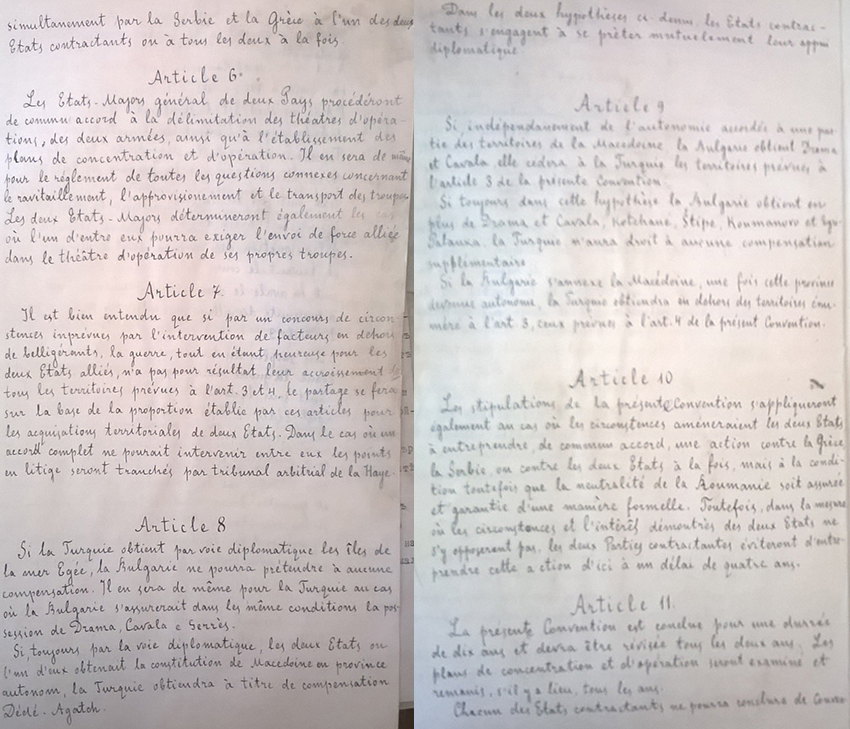 simultanement par la Serbie et la Grèce à l'un des deux
Etats contractants ou à tous les deux à la fois.
Article 6.
Les Etats-Majors général de deux Pays procéderont
de commun accord à la délimitation des théatres d'opéra-
tions, des deux armées, ainsi qu'à l'établissement des
plans de concentration et d'opération. Il en sera de même
pour le réglement de toutes les questions connexes concernant
le ravitaillement, l'approvisionement et le transport des troupes.
Les deux Etats-Majors détermineront également les cas
où l'un d'entre eux pourra exiger l'envoi de force alliée
dans le théâtre d'opération de ses propres troupes.
Article 7.
Il est bien entendu que si par un concours de circon-
stences inprévues par l'intervention de facteurs en dehors
de belligérants, la guerre, tout en étant heureuse pour les
deux Etats alliés, n'a pas pour résultat leur accroissement de
tous les territoires prévues à l'art. 3 et 4, le partage se fera
sur la base de la proportion établie par ces articles pour
les acquisations territoriales de deux Etats. Dans le cas où un
accord complet ne pourait intervenir entre eux les points
en litige seront tranchés par tribunal arbitrial de la Haye.
Article 8
Si la Turquie obtient par voie diplomatique les îles de
la mer Egée, la Bulgarie ne pourra prétendre à aucune
compensation. Il en sera de même pour la Turquie au cas
où la Bulgarie s'assurerait dans les même conditions la pos-
session de Drama, Cavala e Serrès.
Si, toujours par la voie diplomatique, les deux Etats ou
l'un d'eux obtenait la constitution de Macedoine en province
autonom, la Turquie obtiendra à titre de compensation
Dédé-Agatch.
Dans les deux hypothèses ci-dessus, les Etats contrac-
tants s'engagent à se prêter mutuelement leur appui
diplomatique.
Article 9
Si, indépendanement de l'autonomie accordés à une par-
tie des territoires de la Macedoine la Bulgarie obtient Drama
et Cavala, elle cédera à la Turquie les territoires prévues à
l'article 3 de la présente Convention.
Si toujours dans cette hypothèse la Bulgarie obtient en
plus de Drama et Cavala, Kotchané, Štipe, Koumanovo et Egri-
Palanka, la Turquie n'aura droit à aucune compensation
supplémentaire
Si la Bulgarie s'annexe la Macédoine, une fois cette province
devenue autonome, la Turquie obtiendra en dehors des territoires énu-
mère à l'art 3, ceux prévues à l'art. 4 de la présent Convention.
Article 10
Les stipulations de la présente Convention s'appliqueront
également au cas où les circonstences améneraient les deux Etats
à entreprendre, de commun accord, une action contre la Grèce,
la Serbie, ou contre les deux Etats à la fois, mais à la condi-
tion toutefois que la neutralité de la Roumanie soit assurée
et garantie d'une manière formelle. Toutefois, dans la mesure
où les circomstences et l'intérêt démontrés des deux Etats ne
s'y opposeront pas, les deux Parties contractantes éviteront d'entre-
prendre cette action d'ici à un délai de quatre ans.
Article 11.
La présente Convention est conclue pour une durrée
de dix ans et devra être révisée tous les deux ans. Les
plans de concentration et d'opération seront examiné et
remanis, s'il y a lieu, tous les ans.
Chacun des Etats contractants ne pourra conclure de Conven-